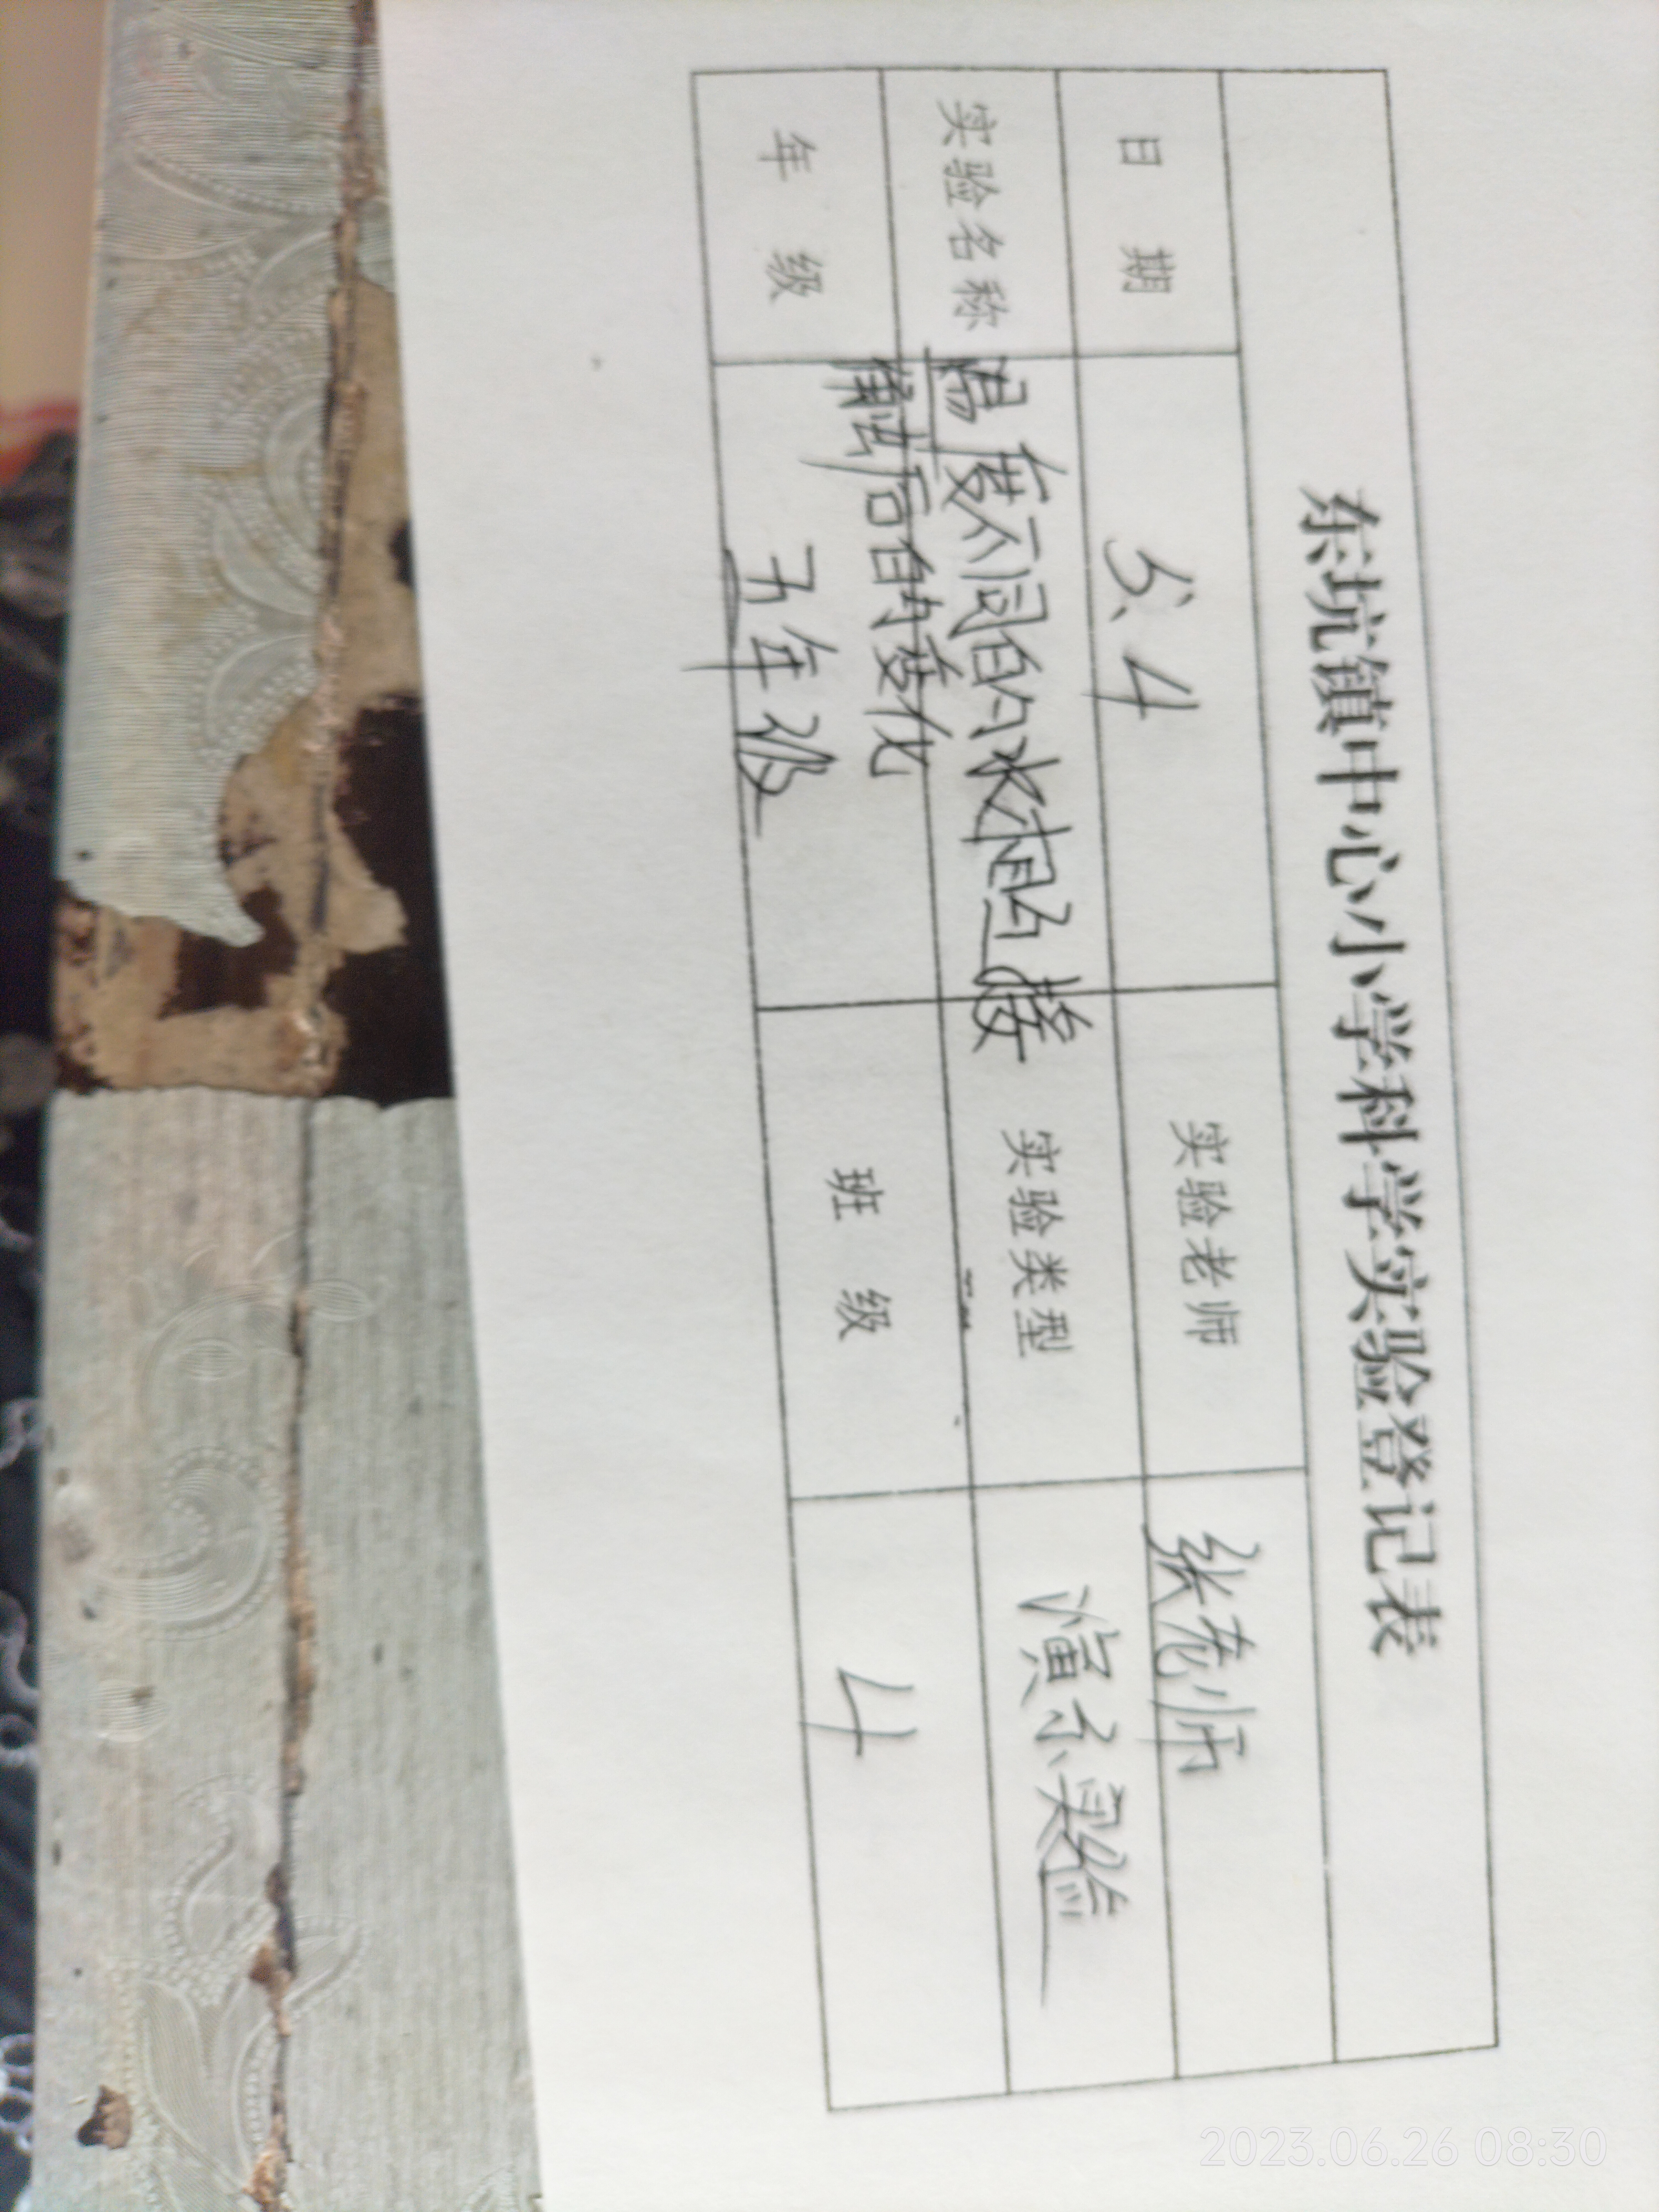 东坑镇中心小学科学实验登记表
日 期 5.4 实验老师 张老师
实验名称 温度不同的水相遇接触后的变化 实验类型 演示实验
年 级 五年级 班 级 4
2023.06.26 08:30